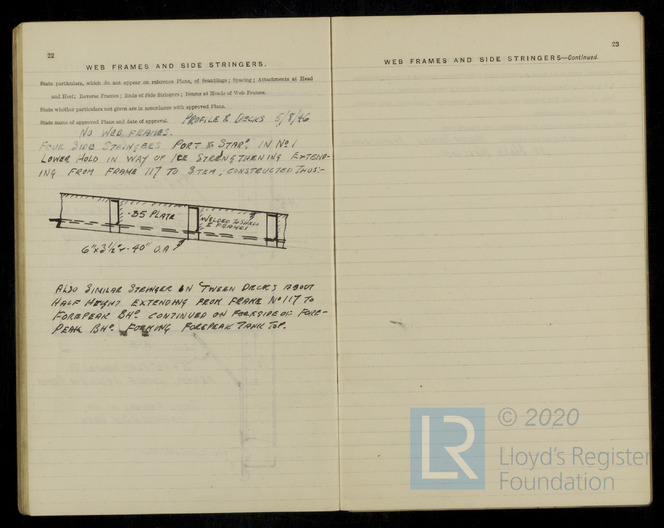 22
WEB FRAMES AND SIDE STRINGERS.
State particulars, which do not appear on reference Plans, of Scantlings; Spacing; Attachments at Head
and Heel; Reverse Frames; Ends of Side Stringers; Beams at Heads of Web Frames.
State whether particulars not given are in accordance with approved Plans.
State name of approved Plans and date of approval. PROFILE & DECKS 5/8/46
NO WEB FRAMES.
FOUR SIDE STRINGERS PORT & STARD. IN No 1
LOWER HOLD IN WAY OF ICE STRENGTHENING EXTEND-
ING FROM FRAME 117 TO STEM, CONSTRUCTED THUS:-
.35 PLATE
WELDED TO SHELL
& FRAMES
6"x3½"x.40" O.A
ALSO SIMILAR STRINGER IN 'TWEEN DECKS ABOUT
HALF HEIGHT EXTENDING FROM FRAME No 117 TO
FOREPEAK BHD CONTINUED ON FORESIDE OF FORE-
PEAK BHD FORMING FOREPEAK TANK TOP.
23
WEB FRAMES AND SIDE STRINGERS—Continued.
LR
© 2020
Lloyd's Register
Foundation